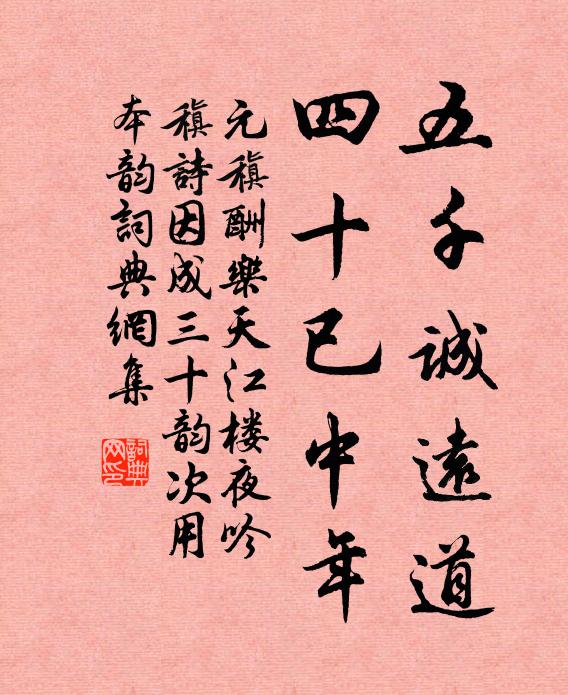 五千誠遠道
四十已中年
元稹酬樂天江楼夜吟
稹詩因成三十韵次用
本韵詞典網集
詞典网印